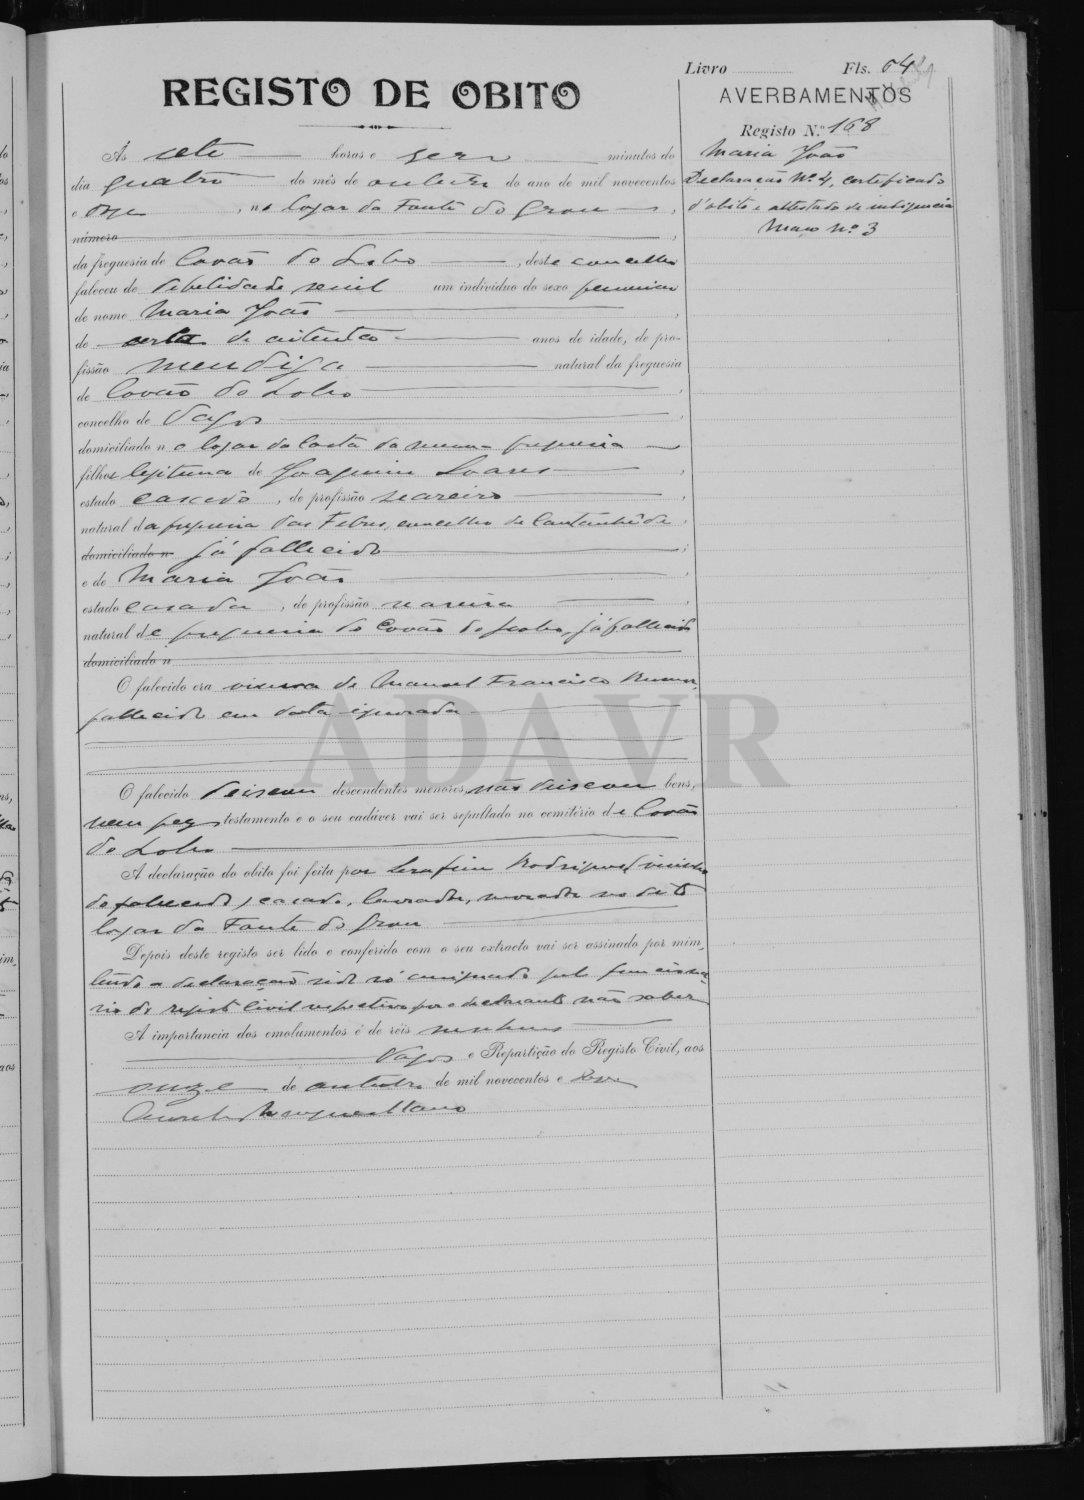 Livro Fls. 64
REGISTO DE OBITO
AVERBAMENTOS
Registo N.º 168
Maria João
Declaração Nº 4, certificado
d'obito e attestado de indigencia
Maço nº 3
Ás sete horas e zero minutos do
dia quatro do mês de outubro do ano de mil novecentos
e onze, no logar da Fonte do Grou,
número
da freguesia de Covão do Lobo, deste concelho
faleceu de debelidade senil um individuo do sexo femenino
de nome Maria João,
de cerca de oitenta anos de idade, de pro-
fissão mendiga natural da freguesia
de Covão do Lobo,
concelho de Vagos,
domiciliado no logar da Costa da mesma freguesia,
filho legitima de Joaquim Soares,
estado casado, de profissão seareiro,
natural da freguesia das Febres, concelho de Cantanhêde,
domiciliado n já fallecido;
e de Maria João,
estado casada, de profissão seareira,
natural de freguesia do Covão do Lobo, já fallecida
domiciliado n
O falecido era viuva de Manuel Francisco
fallecido em data ignorada
O falecido deixou descendentes menores, não deixou bens,
nem fez testamento e o seu cadáver vai ser sepultado no cemitério de Covão
do Lobo
A declaração do obito foi feita por Serafim Rodrigues,
do fallecido, casado, lavrador, morador no dito
logar da Fonte do Grou
Depois deste registo ser lido e conferido com o seu extracto vai ser assinado por mim,
tendo a declaração sido só assignada pelo funcciona-
rio do registo civil respectivo por o declarante não saber
A importancia dos emolumentos é de réis nenhuns
Vagos e Repartição do Registo Civil, aos
onze de outubro de mil novecentos e onze
ADAVR